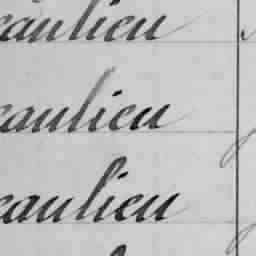 eaulieu
eaulieu
eaulieu